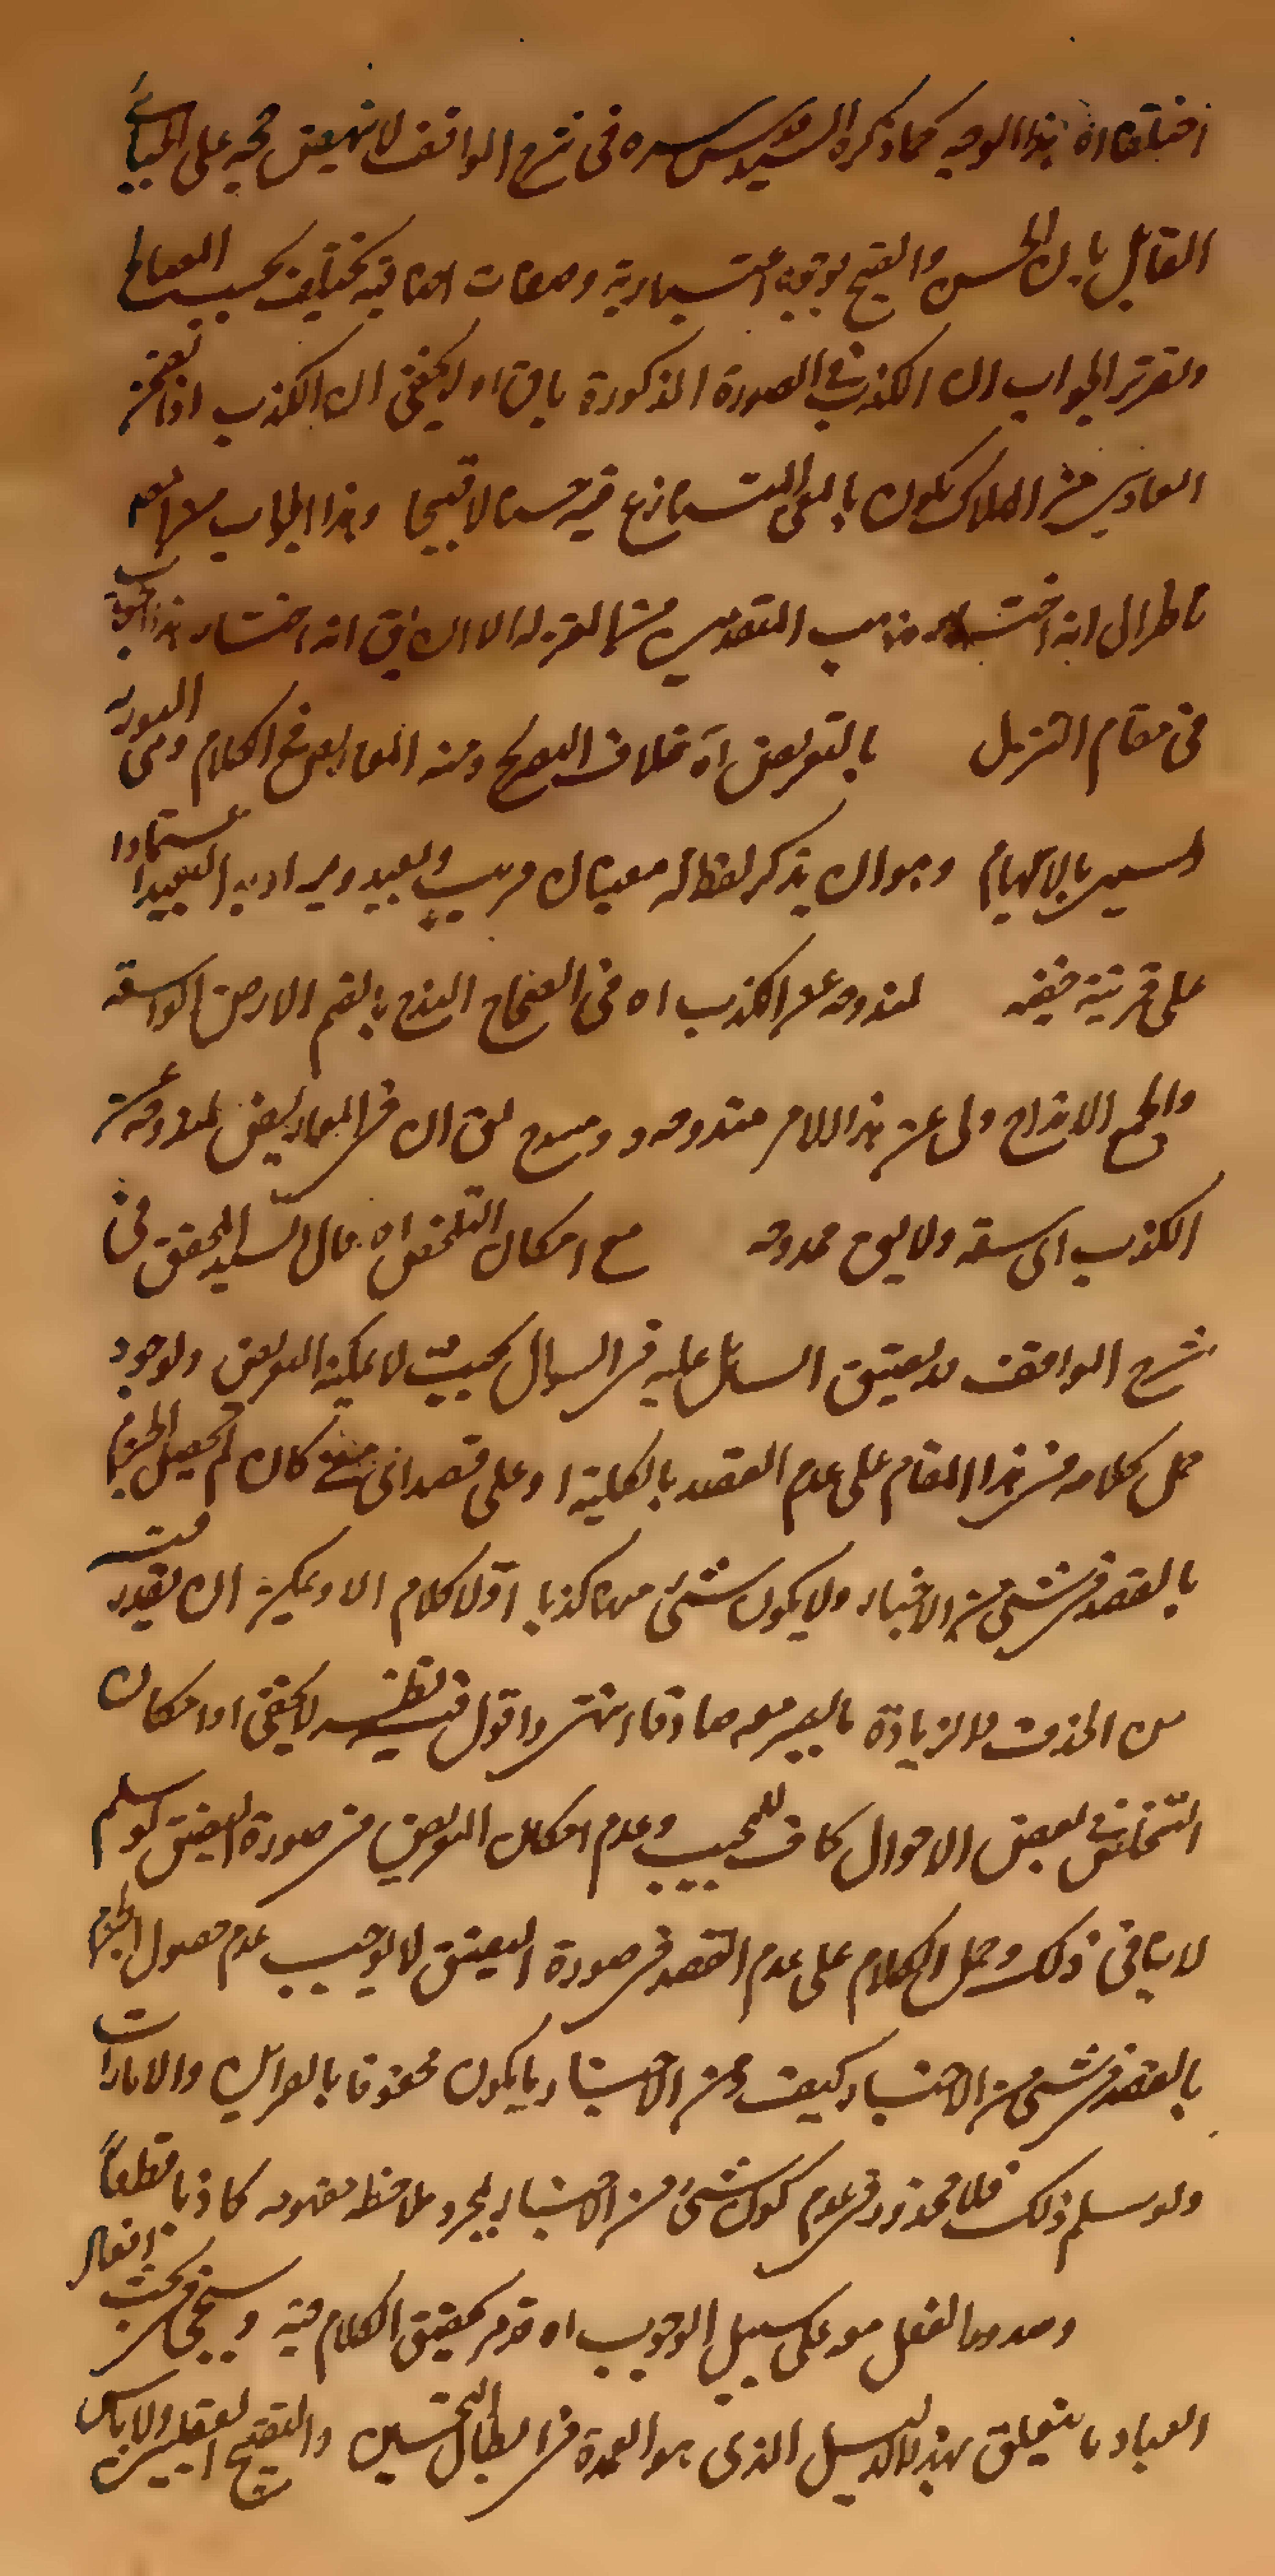 اختلفا اه هذا الوجه كما ذكره السيد قدس سره فى شرح المواقف لا ينهض حجه على الجبائى
القائل بان الحسن والقبح لوجوه اعتبارية وصفات اضافيه يختلف بحسب المصالح
وتقرير الجواب ان الكذب فى الصورة المذكورة باق اه لا يخفى ان الكذب اذا تضمن
من الهلاك يكون بالمعنى المتنازع فيه حسنا لا قبيحا وهذا الجواب من المص
ناظر الى انه اختار مذهب المتقدمين من المعتزلة الا ان يق انه اختار هذا الجواب
فى مقام التنزل بالتعريض اه خلاف التصريح ومنه المعاريض فى الكلام وهى التورية
بالايهام وهو ان يذكر لفظ له معنيان قريب وبعيد ويراد به البعيد اعتمادا
على قرينة خفيه لمندوحه عن الكذب اه فى الصحاح الندح بالضم الارض الواسعة
والجمع الانداح ولى عن هذا الامر مندوحه و يق ان فى المعاريض لمندوحة عن
الكذب اى سعة ولا يق ممدوحه مع امكان التخلص اه قال السيد المحقق فى
شرح المواقف قد يضيق السائل عليه فى السؤال بحيث لا يمكنه التعريض ولو جوز
حمل كلامه فى هذا المقام على عدم القصد بالكلية او على قصد اى معنى كان لم يحصل الجزم
بالقصد فى شىء من الاخبار ولا يكون شىء منها كذبا اذ لا كلام الا ويمكن ان يقدر فيه
من الحذف والزيادة ما يصير معه صادقا انتهى واقول فيه نظر لا يخفى اذ امكان
التخلص فى بعض الاحوال كاف للمجيب وعدم امكان التعريض فى صورة التضييق لو سلم
لا ينافى ذلك وحمل الكلام على عدم القصد فى صورة التضييق لا يوجب عدم حصول الجزم
بالقصد فى شىء من الاخبار كيف ومن الاخبار ما يكون محفوفا بالقراين والامارات
ولو سلم ذلك فلا محذور فى عدم كون شىء من الاخبار بمجرد ملاحظة مفهومه كاذبا قطعاً
وصدور الفعل عنه على سبيل الوجوب اه قد مر تحقيق الكلام فيه وسيجىء فى بحث افعال
العباد ما يتعلق بهذا الدليل الذى هو العمدة فى ابطال التحسين والتقبيح العقليين ولا باس